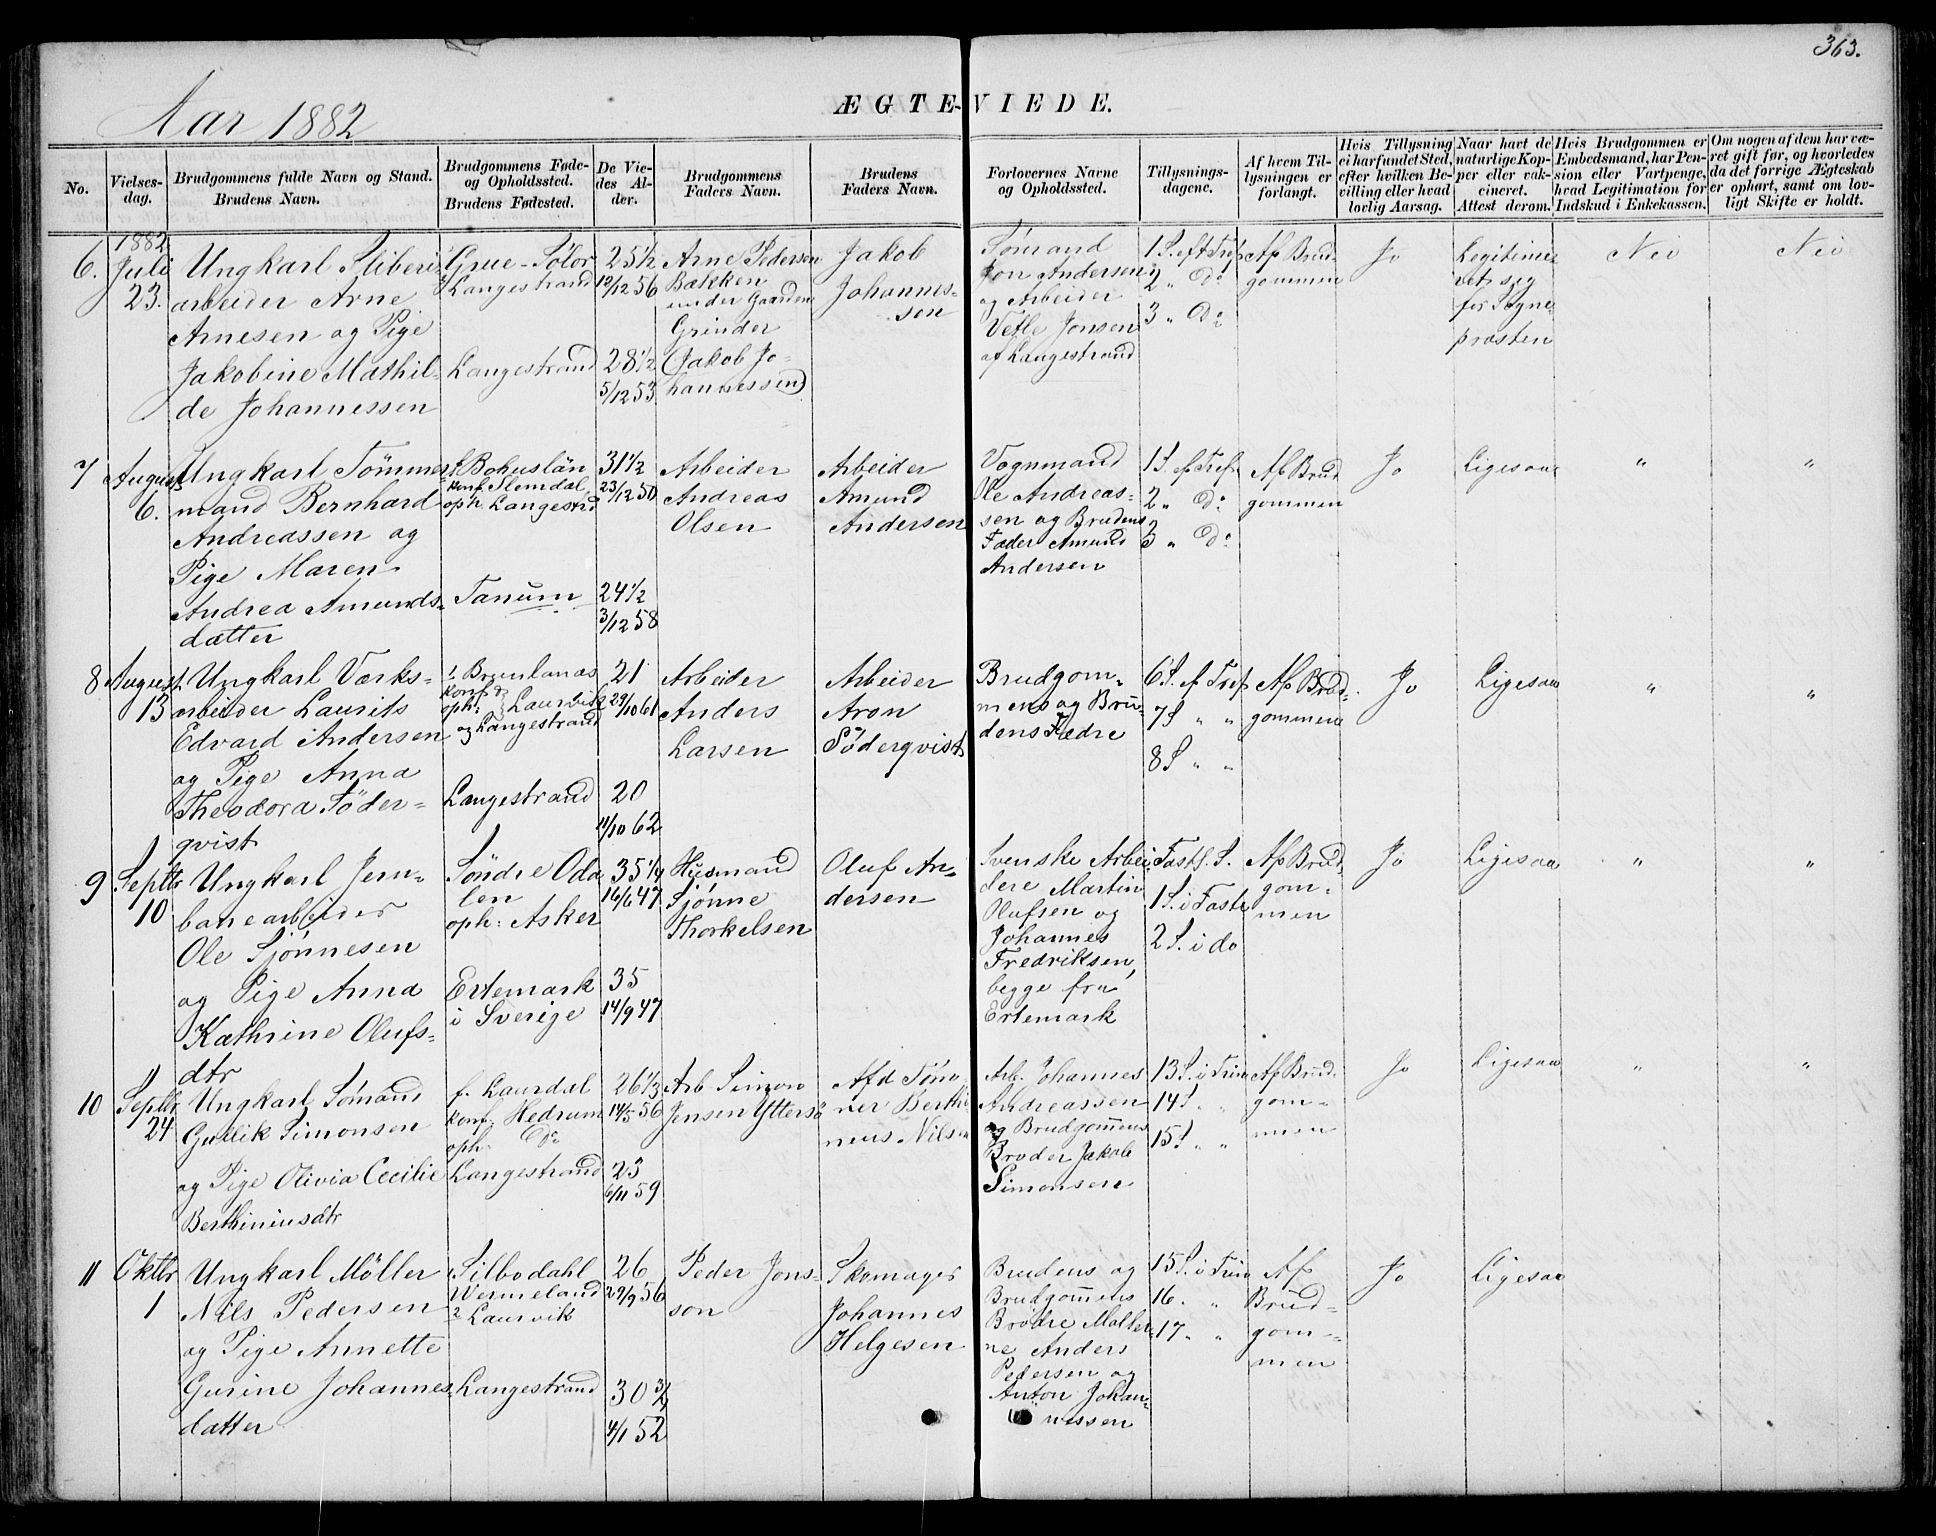 363.
Aar 1882
ÆGTEVIEDE.
No.
Vielses-
dag.
Brudgommens fulde Navn og Stand.
Brudens Navn.
Brudgommens Føde-
og Opholdssted.
Brudens Fødested.
De Vie-
des Al-
der.
Brudgommens
Faders Navn.
Brudens
Faders Navn.
Forlovernes Navne
og Opholdssted.
Tillysnings-
dagene.
Af hvem Til-
lysningen er
forlangt.
Hvis Tillysning
ei har fundet Sted,
efter hvilken Be-
villing eller hvad
lovlig Aarsag.
Naar havt de
naturlige Kop-
per eller vak-
cineret.
Attest derom.
Hvis Brudgommen er
Embedsmand, har Pen-
sion eller Vartpenge,
hvad Legitimation for
Indskud i Enkekassen.
Om nogen af dem har væ-
ret gift før, og hvorledes
da det forrige Ægteskab
er ophørt, samt om lov-
ligt Skifte er holdt.
6.
1882
Juli
23.
Ungkarl Sliberi
arbeider Arne
Arnesen og Pige
Jakobine Mathil-
de Johannessen
Grue-Solør
Langestrand
Langestrand
25 1/2
12/12 56
28 1/2
5/12 53
Arne Pedersen
Bakken
under Gaarden
Grinder
(Jakob Jo-
hannessen)
Jakob
Johannes-
sen
Sømand
Jon Andersen
og Arbeider
Vetle Jonsen
af Langestrand
1 S. eft Tref
2 " Do
3 " Do
Af Brud-
gommen
Jo
Legitime-
ret sig
for Sogne-
præsten
Nei
Nei
7
August
6.
Ungkarl Tømmer-
mand Bernhard
Andreassen og
Pige Maren
Andrea Amunds-
datter
f. Bohuslän
konf. Slemdal
oph. Langestrd
Tanum
31 1/2
23/12 50
24 1/2
3/12 58
Arbeider
Andreas
Olsen
Arbeider
Amund
Andersen
Vognmand
Ole Andreas-
sen og Brudens
Fader Amund
Andersen
1 S. ef Tref
2 " Do
3 " Do
Af Brud
gommen
Jo
Ligesaa
"
"
8
August
13
Ungkarl Værks-
arbeider Laurits
Edvard Andersen
og Pige Anna
Theodora Söder-
qvist
Brunlanæs
konf. og
oph: Laurvik
og Langestrand
Langestrand
21
29/10 61
20
11/10 62
Arbeider
Anders
Larsen
Arbeider
Aron
Söderqvist
Brudgom-
mens og Bru-
dens Fædre
6 S. ef Tref
7 S " "
8 S " "
Af Brud-
gommen
Jo
Ligesaa
"
"
9
Septbr
10
Ungkarl Jern-
banearbeider
Ole Sjønnesen
og Pige Anna
Kathrine Olufs-
dtr
Søndre Oda
len
oph: Asker
Ertemark
i Sverige
35 1/4
16/6 47
35
14/9 47
Husmand
Sjønne
Thorkelsen
Oluf An-
dersen
Svenske Arbei-
dere Martin
Olufsen og
Johannes
Fredriksen,
begge fra
Ertemark
Fastl. S.
1 S. i Faste
2 S. i do
Af Brud,
gom-
men
Jo
Ligesaa
"
"
10
Septbr
24
Ungkarl Sømand
Gullik Simonsen
og Pige Olivia Cecilie
Berthiniusdtr
f. Laurdal
konf. Hedrum
oph. Do
Langestrand
26 1/3
14/5 56
23
6/11 59
Arb Simon
Jensen Yttersö
Afd Tøm-
ner Berthi
nius Nilsen
Arb. Johannes
Andreassen
og Brudgommens
Broder Jakob
Simonsen
13 S. i Trin
14 S. "
15 S " "
Af Brud-
gom-
men
Jo
Ligesaa
"
"
11
Oktbr
1
Ungkarl Møller
Nils Pedersen
og Pige Annette
Gurine Johannes-
datter
Silbodahl
Wermeland
2 Laurvik
Langestrand
26
29/9 56
30 3/4
4/1 52
Peder Jons-
son
Skomager
Johannes
Helgesen
Brudens og
Brudgommens
Brødre Møller-
ne Anders
Pedersen og
Anton Johan-
nessen
15 S. i Trin
16. "
17 " "
Af
Brud-
gom-
men
Jo
Ligesaa